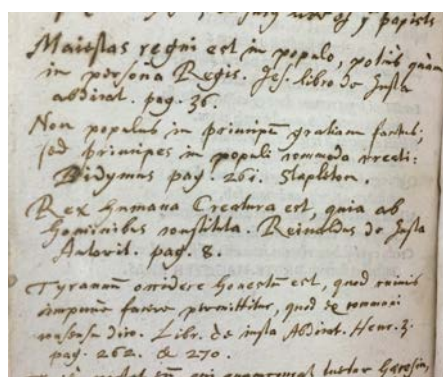 of y papists
Maiestas regni est in populo, potius quam
in persona Regis. Jes. libro de Justa
abdicat. pag. 36
Non populus in principum gratiam factus;
sed principes in populi commoda creati:
Didymus pag. 261. Stapleton.
Rex humana Creatura est, quia ab
hominibus constituta. Reinaldus de Justa
Autorit. pag. 8.
Tyrannum occidere honestum est, quod cuivis
impune facere permittitur, quod ex communi
consensu dico. Libr. de iusta Abdicat. Henr. 3.
pag. 262. & 270.